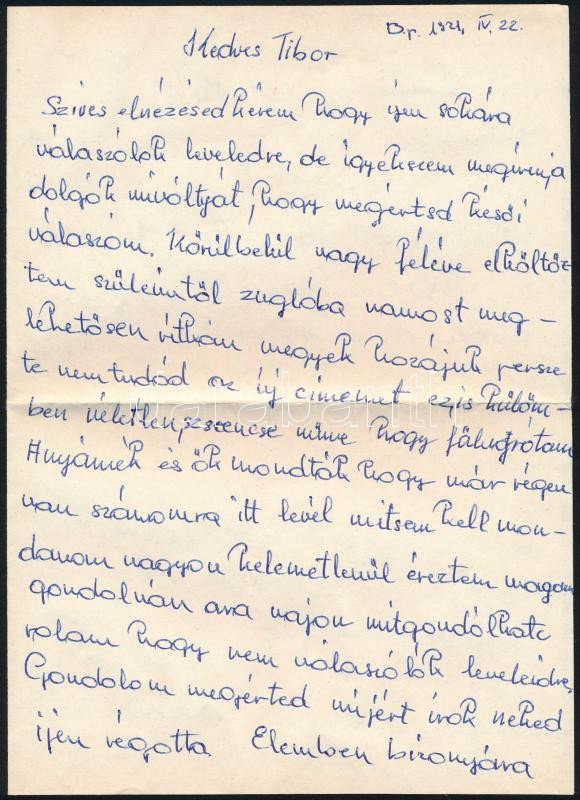 Bp. 1971, IV. 22.
Kedves Tibor
Szives elnézésed kérem hogy ijen sokára
válaszólok leveledre, de igyekszem megirnia
dolgók mivóltyát, hogy megértsd késői
válaszóm. Körülbelül vagy féléve elköltöz
tem szüleimtöl zuglóba namost meg-
lehetösen ritkán megyek hozájuk persze
te nemtudód az új címemet ezis külöm-
ben véletlen szerencse műve hogy
Anyámék és ők mondták hogy már régen
van számomra itt levél mitsem kell mon-
danom nagyon kelemetlenül éreztem magam
gondolván ara vajon mitgondólhatc
rolam hogy nem válaszólók leveleidre,
Gondolom megérted mijért irok neked
ijen régotta. Elemben bizonyára
darabanth